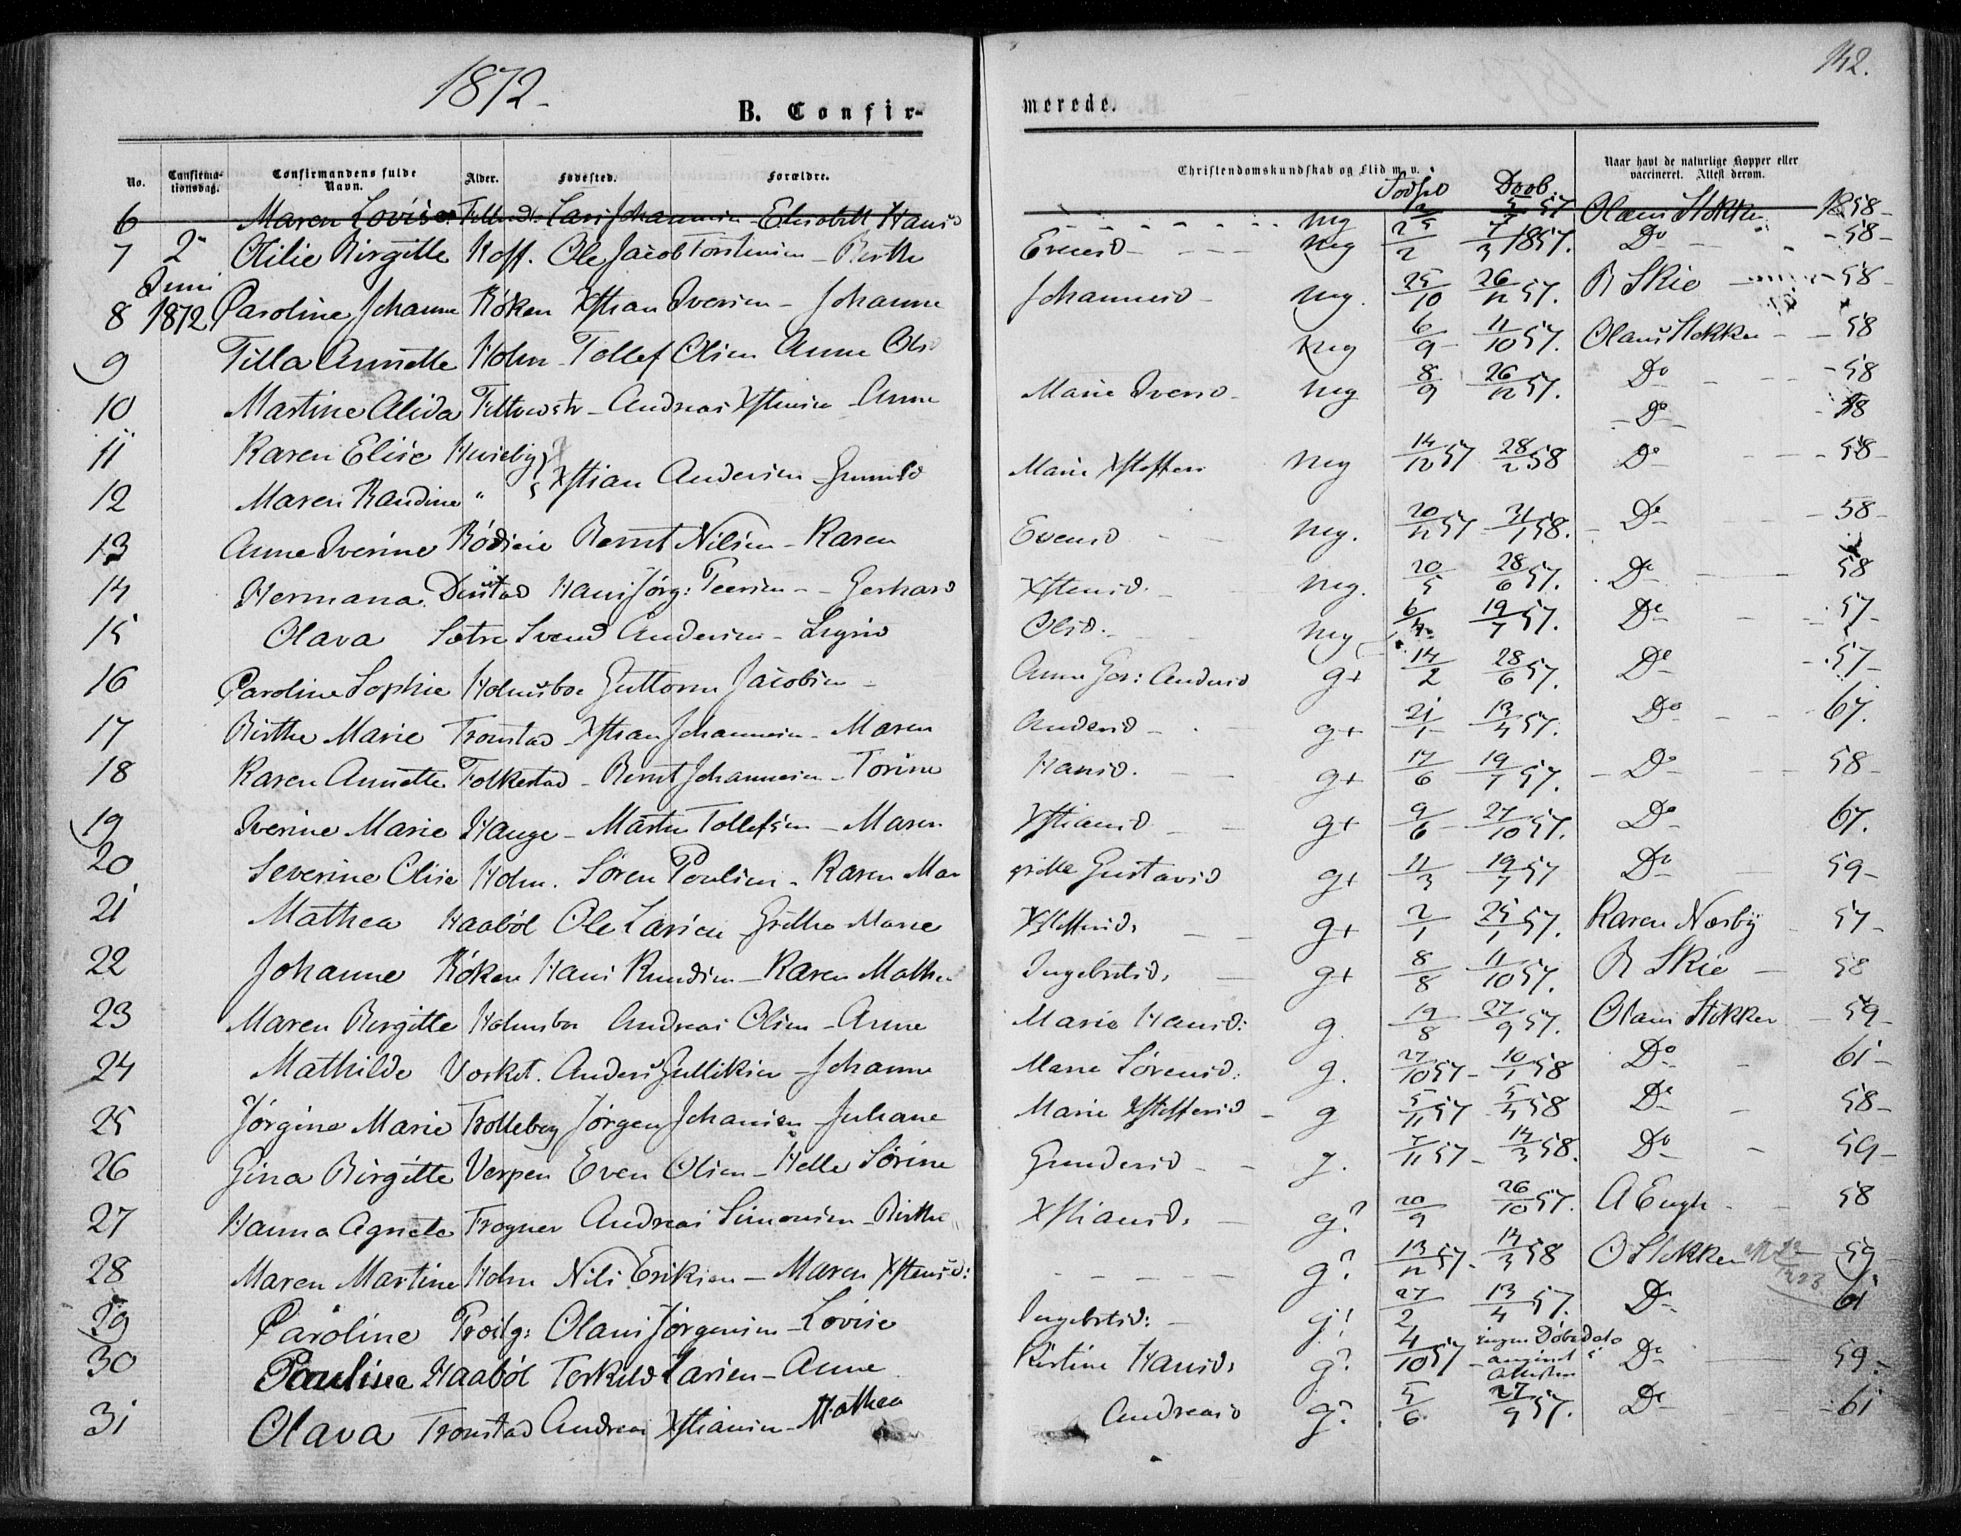 1872
B. Confir-
merede.
142.
No.
Confirma-
tionsdag.
Confirmandens fulde
Navn.
Alder.
Fødested.
Forældre.
Christendomskundskab og Flid m. v.
Naar havt de naturlige Kopper eller
vaccineret. Attest derom.
Fødsel Daab
6 Maren Lovise Lars Johannesen - Elisabeth Hansd mg 57 Olaus Stokker 58-
7 2 Otilie Birgitte Hoff. Ole Jacob Torstensen - Birthe Evensd - mg 25/2 7/3 1857. Do - 58-
Juni
8 1872 Caroline Johanne Røken Xstian Iversen - Johanne Johannesd - mg. 25/10 26/12 57. B Skie - 58-
9 Tilla Annette Holm - Tollef Olsen Anne Olsd mg 6/9 11/10 57. Olaus Stokker - 58
10 Martine Alida - Andreas Xstensen - Anne Marie Iversd - mg 8/9 26/12 57. Do - 58
- Do - 58
11 Karen Elise Hvideby
12 Maren Randine " Xstian Andersen - Gunnild Marie Xstoffers mg 14/12 57 28/2 58 Do - 58-
13 Anne Iverine Rødseie Bernt Nilsen - Karen Evensd mg. 20/11 57 31/1 58. Do - 58-
14 Hermana Daustad Hans Jørg: Peersen - Gerhard Xstensd. mg. 20/5 28/6 57. Do - 58
15 Olava Sætre Svend Andersen - Sigrid Olsd. mg 6/4 19/7 57. Do - 57-
16 Caroline Sophie Holmsboe Guttorm Jacobsen - Anne Ger: Andersd g+ 14/2 28/6 57. Do - 57-
17 Birthe Marie Tronstad Xstian Johannesen - Maren Andersd - g+ 21/1 13/4 57. Do - 67.
18 Karen Annette Folkestad - Bernt Johannesen - Torine Hansd. g+ 17/6 19/7 57. - Do - 58-
19 Iverine Marie Hauge - Martin Tollefsen - Maren Xstiansd g+ 9/6 27/10 57. Do - 67.
20 Severine Elise Holm. Søren Poulsen - Karen Mar grithe Gustavsd g+ 11/3 19/7 57 Do - 59-
21 Mathea Haabøl Ole Larsen Grethe Marie Xstoffersd. g+ 2/1 25/1 57. Karen Næsby 57-
22 Johanne Røken Hans Knudsen - Karen Mathea Ingebretsd. g+ 8/8 11/10 57. B Skie - 58
23 Maren Birgitte Holmsboe Andreas Olsen - Anne Marie Hansd: g. 19/8 27/9 57. Olaus Stokker - 59-
24 Mathilde Anders Gulliksen - Johanne Marie Sørensd: g. 27/10 57 - 10/1 58 Do - 61-
25 Jørgine Marie Trolleberg Jørgen Johansen - Juliane Marie Xstoffersd - g 5/11 57 5/4 58 Do - 58-
26 Gina Birgitte Verpen Even Olsen - Helle Sørine Gundersd - g. 7/11 57 - 14/3 58. Do - 59-
27 Hanna Agnete Frogner Andreas Simensen - Birthe Xstiansd. g? 20/9 26/10 57. A Engh - 58
28 Maren Martine Holm Nils Eriksen - Maren Xstensd: - g? 13/12 57 - 14/3 58 O Stokker 59-
29 Caroline Præstg: Olaus Jørgensen - Lovise Ingebretsd: g? 27/2 13/4 57. Do 61
30 Pauline Haabøl Torkeld Larsen - Anne Kirstine Hansd. g? 4/10 57 - ingen Døbedato angivet i Attesten Do - 59-
31 Olava Tronstad Andreas Xstiansen - Mathea Andreasd g? 5/6 27/9 57. Do - 61